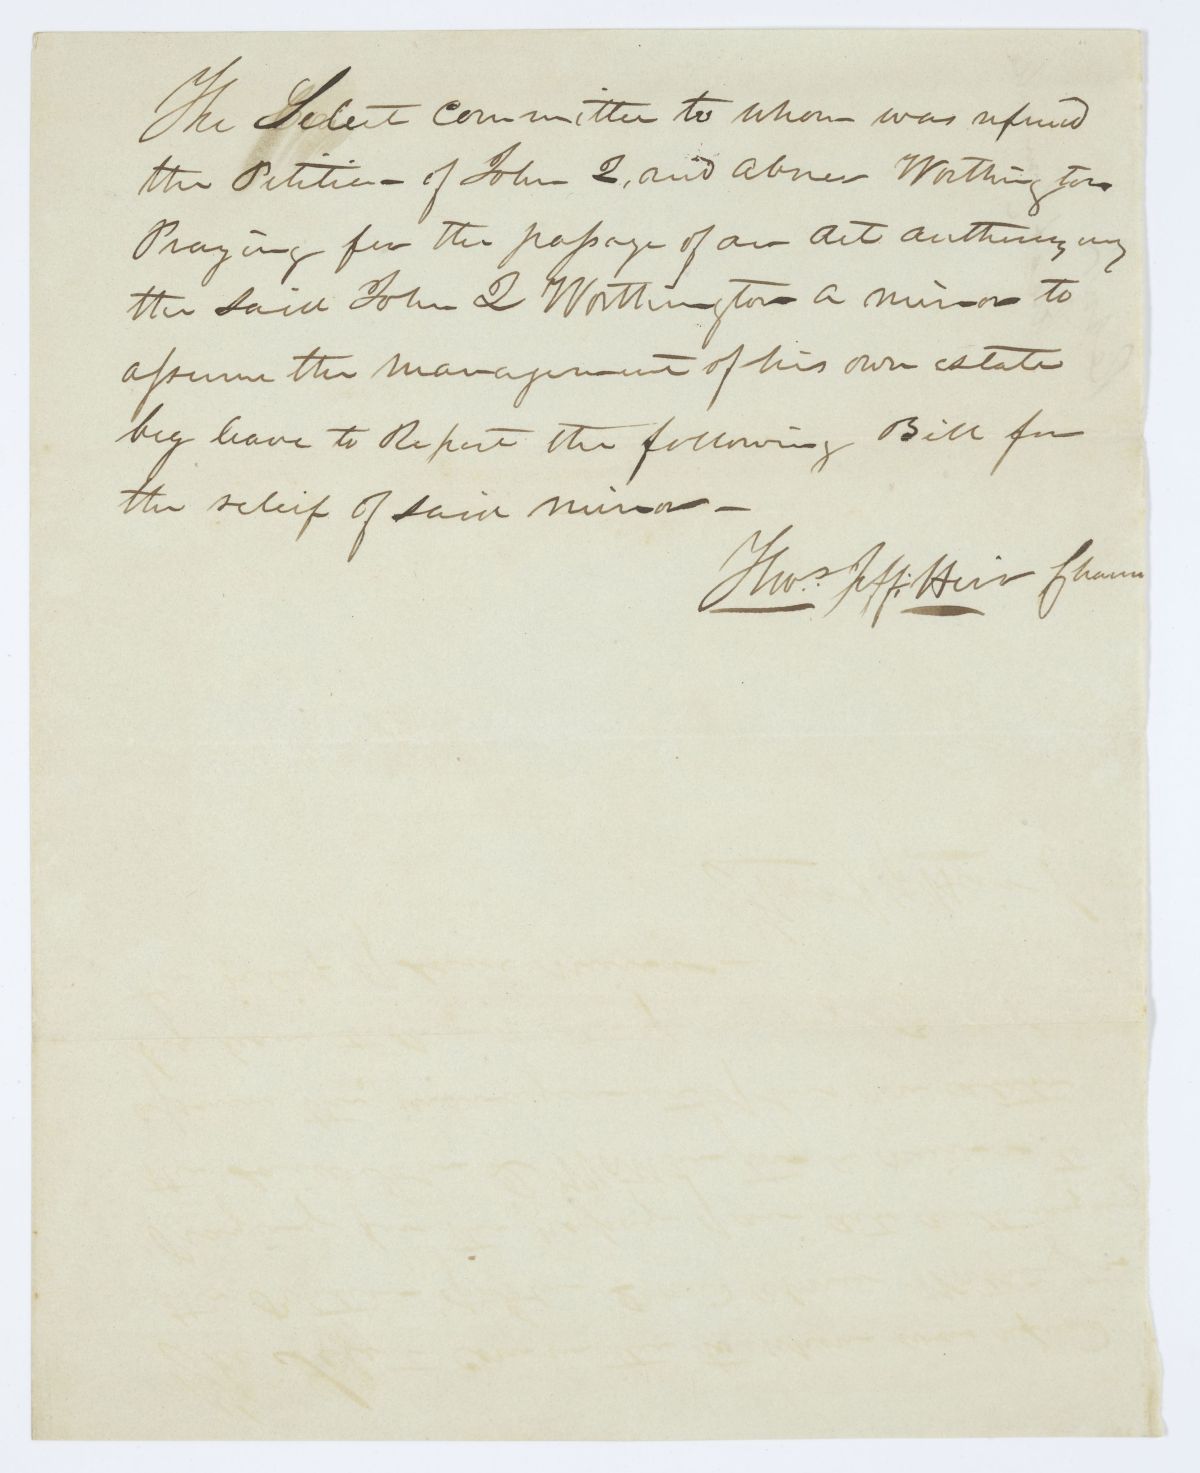 The Select Committee to whom was referred
the Petition of John Q, and Abner Worthington
Praying for the passage of an Act Authorizing
the said John Q Worthington a minor to
assume the management of his own estate
beg leave to Report the following Bill for
the releif of said minor —
Thos. Jeff: